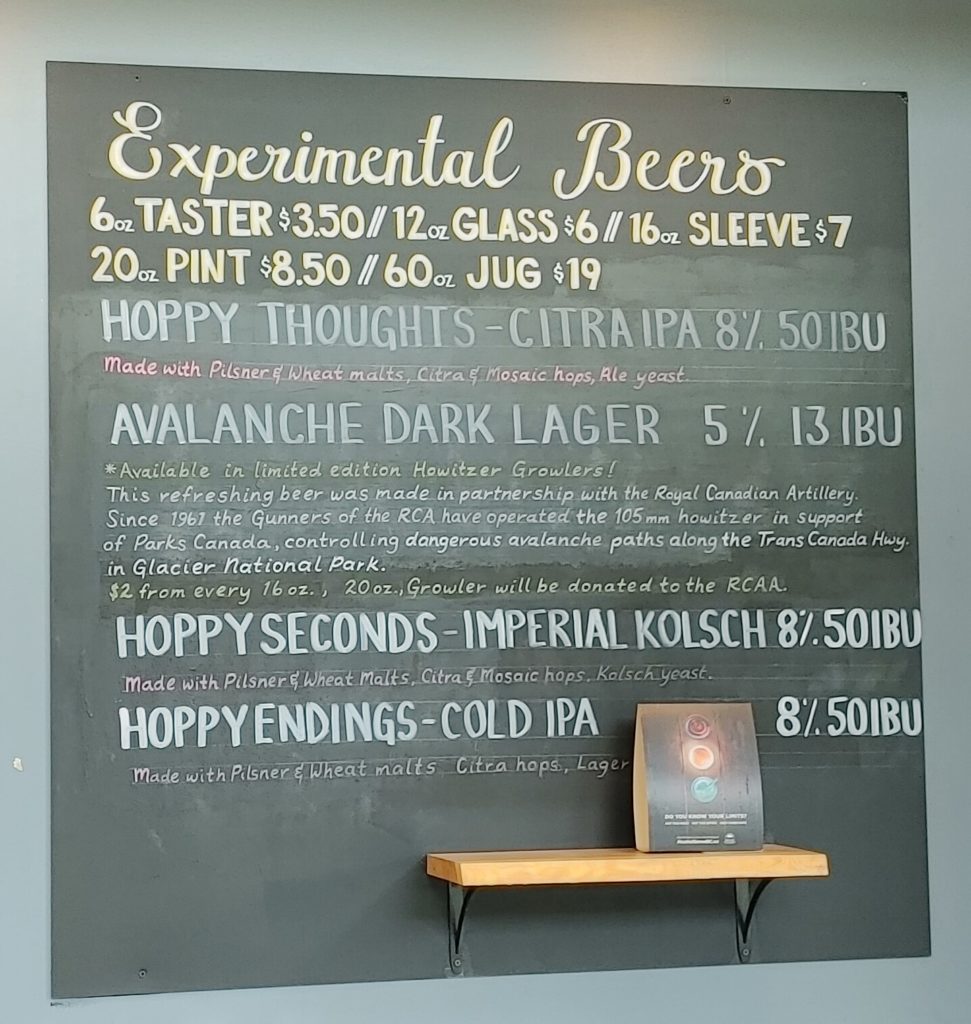 Experimental Beers
6oz TASTER $3.50 // 12oz GLASS $6 // 16oz SLEEVE $7
20oz PINT $8.50 // 60oz JUG $19
HOPPY THOUGHTS - CITRA IPA 8% 50 IBU
Made with Pilsner & Wheat malts, Citra & Mosaic hops, Ale yeast.
AVALANCHE DARK LAGER 5% 13 IBU
*Available in limited edition Howitzer Growlers!
This refreshing beer was made in partnership with the Royal Canadian Artillery.
Since 1961 the Gunners of the RCA have operated the 105mm howitzer in support
of Parks Canada, controlling dangerous avalanche paths along the Trans Canada Hwy.
in Glacier National Park.
$2 from every 16oz., 20oz., Growler will be donated to the RCAA.
HOPPY SECONDS - IMPERIAL KOLSCH 8% 50 IBU
Made with Pilsner & Wheat Malts, Citra & Mosaic hops, Kolsch yeast.
HOPPY ENDINGS - COLD IPA 8% 50 IBU
Made with Pilsner & Wheat malts Citra hops, Lager
DO YOU KNOW YOUR LIMITS?